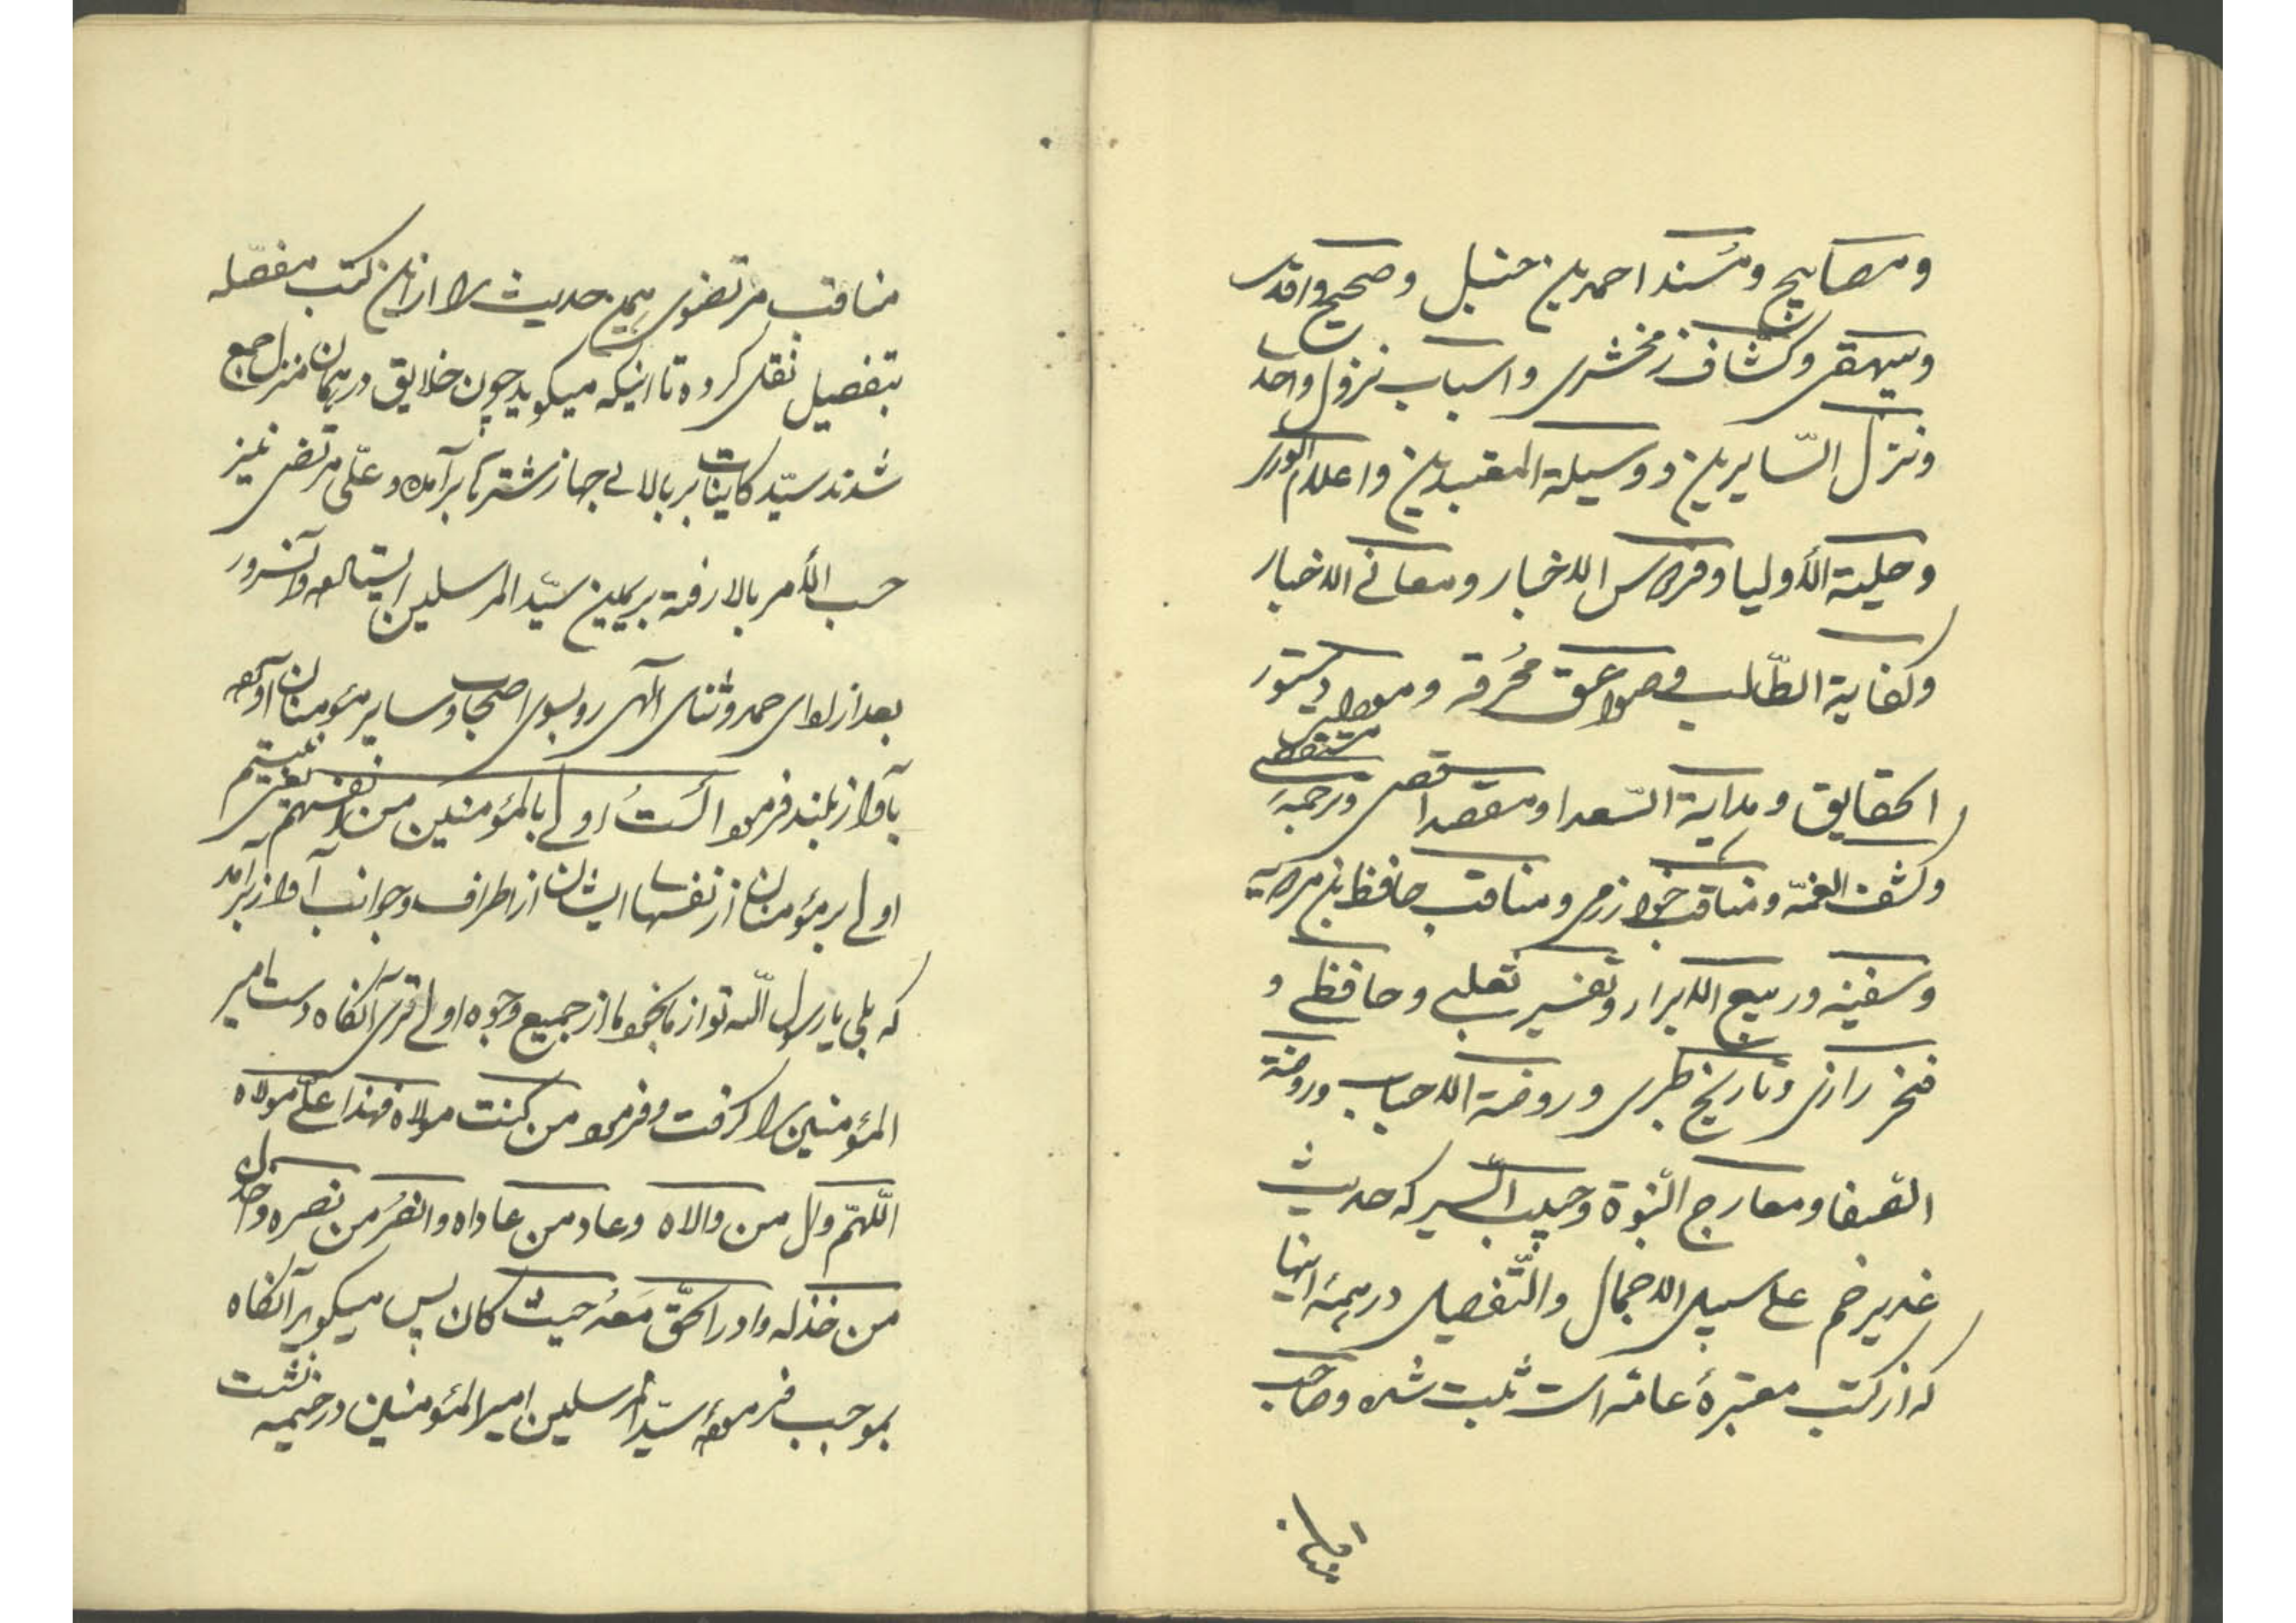 ومصابیح ومُسند احمد بن حنبل وصحیح واقدی
وبیهقی وکشاف زمخشری واسباب نزول واحدی
ونزل السّایرین ووسیلة المتعبدین واعلام الوری
وحلیة الأولیا وفردوس الاخبار ومعانی الاخبار
وکفایة الطّالب وصواعق مُحرقه و دستور
الحقایق وهدایة السّعدا ومقصد اقصی وترجمهٔ مستقصی
وکشف الغمّه ومناقب خوارزمی ومناقب حافظ بن مردویه
وسفینه وربیع الابرار وتفسیر ثعلبی وحافظی و
فخر رازی وتاریخ طبری وروضة الاحباب وروضة
الصّفا ومعارج النّبوة وحبیب السّیر که حدیث
غدیر خم علی سبیل الاجمال والتّفصیل در همهٔ اینها
که از کتب معتبرهٔ عامّه است ثبت شده وصاحب
مناقب مرتضوی همین حدیث را از این کتب مفصّله
بتفصیل نقل کرده تا اینکه میکوید چون خلایق در همان منزل جمع
شدند سیّد کاینات بر بالای جهاز شترها برآمده وعلی مرتضی نیز
حسب الأمر بالا رفته بر یمین سیّد المرسلین ایستاده وآنسرور
بعد از ادای حمد وثنای الهی رو بسوی اصحاب وسایر مؤمنان آورده
بآواز بلند فرمود اَلَستُ اولی بالمؤمنین من انفسهم یعنی نیستم
اولی بر مؤمنان از نفسهای ایشان از اطراف وجوانب آواز برآمد
که بلی یا رسول اللّه تو از ما بخود ما از جمیع وجوه اولی تری آنکاه دست امیر
المؤمنین را کرفت وفرمود من کنت مولاه فهذا علیّ مولاه
اللّهمّ وال من والاه وعاد من عاداه وانصُر من نصره واخذل
من خذله وادر الحقّ مَعَهُ حیث کان پس میکوید آنکاه
بموجب فرمودهٔ سیّد المرسلین امیر المؤمنین در خیمه نشست